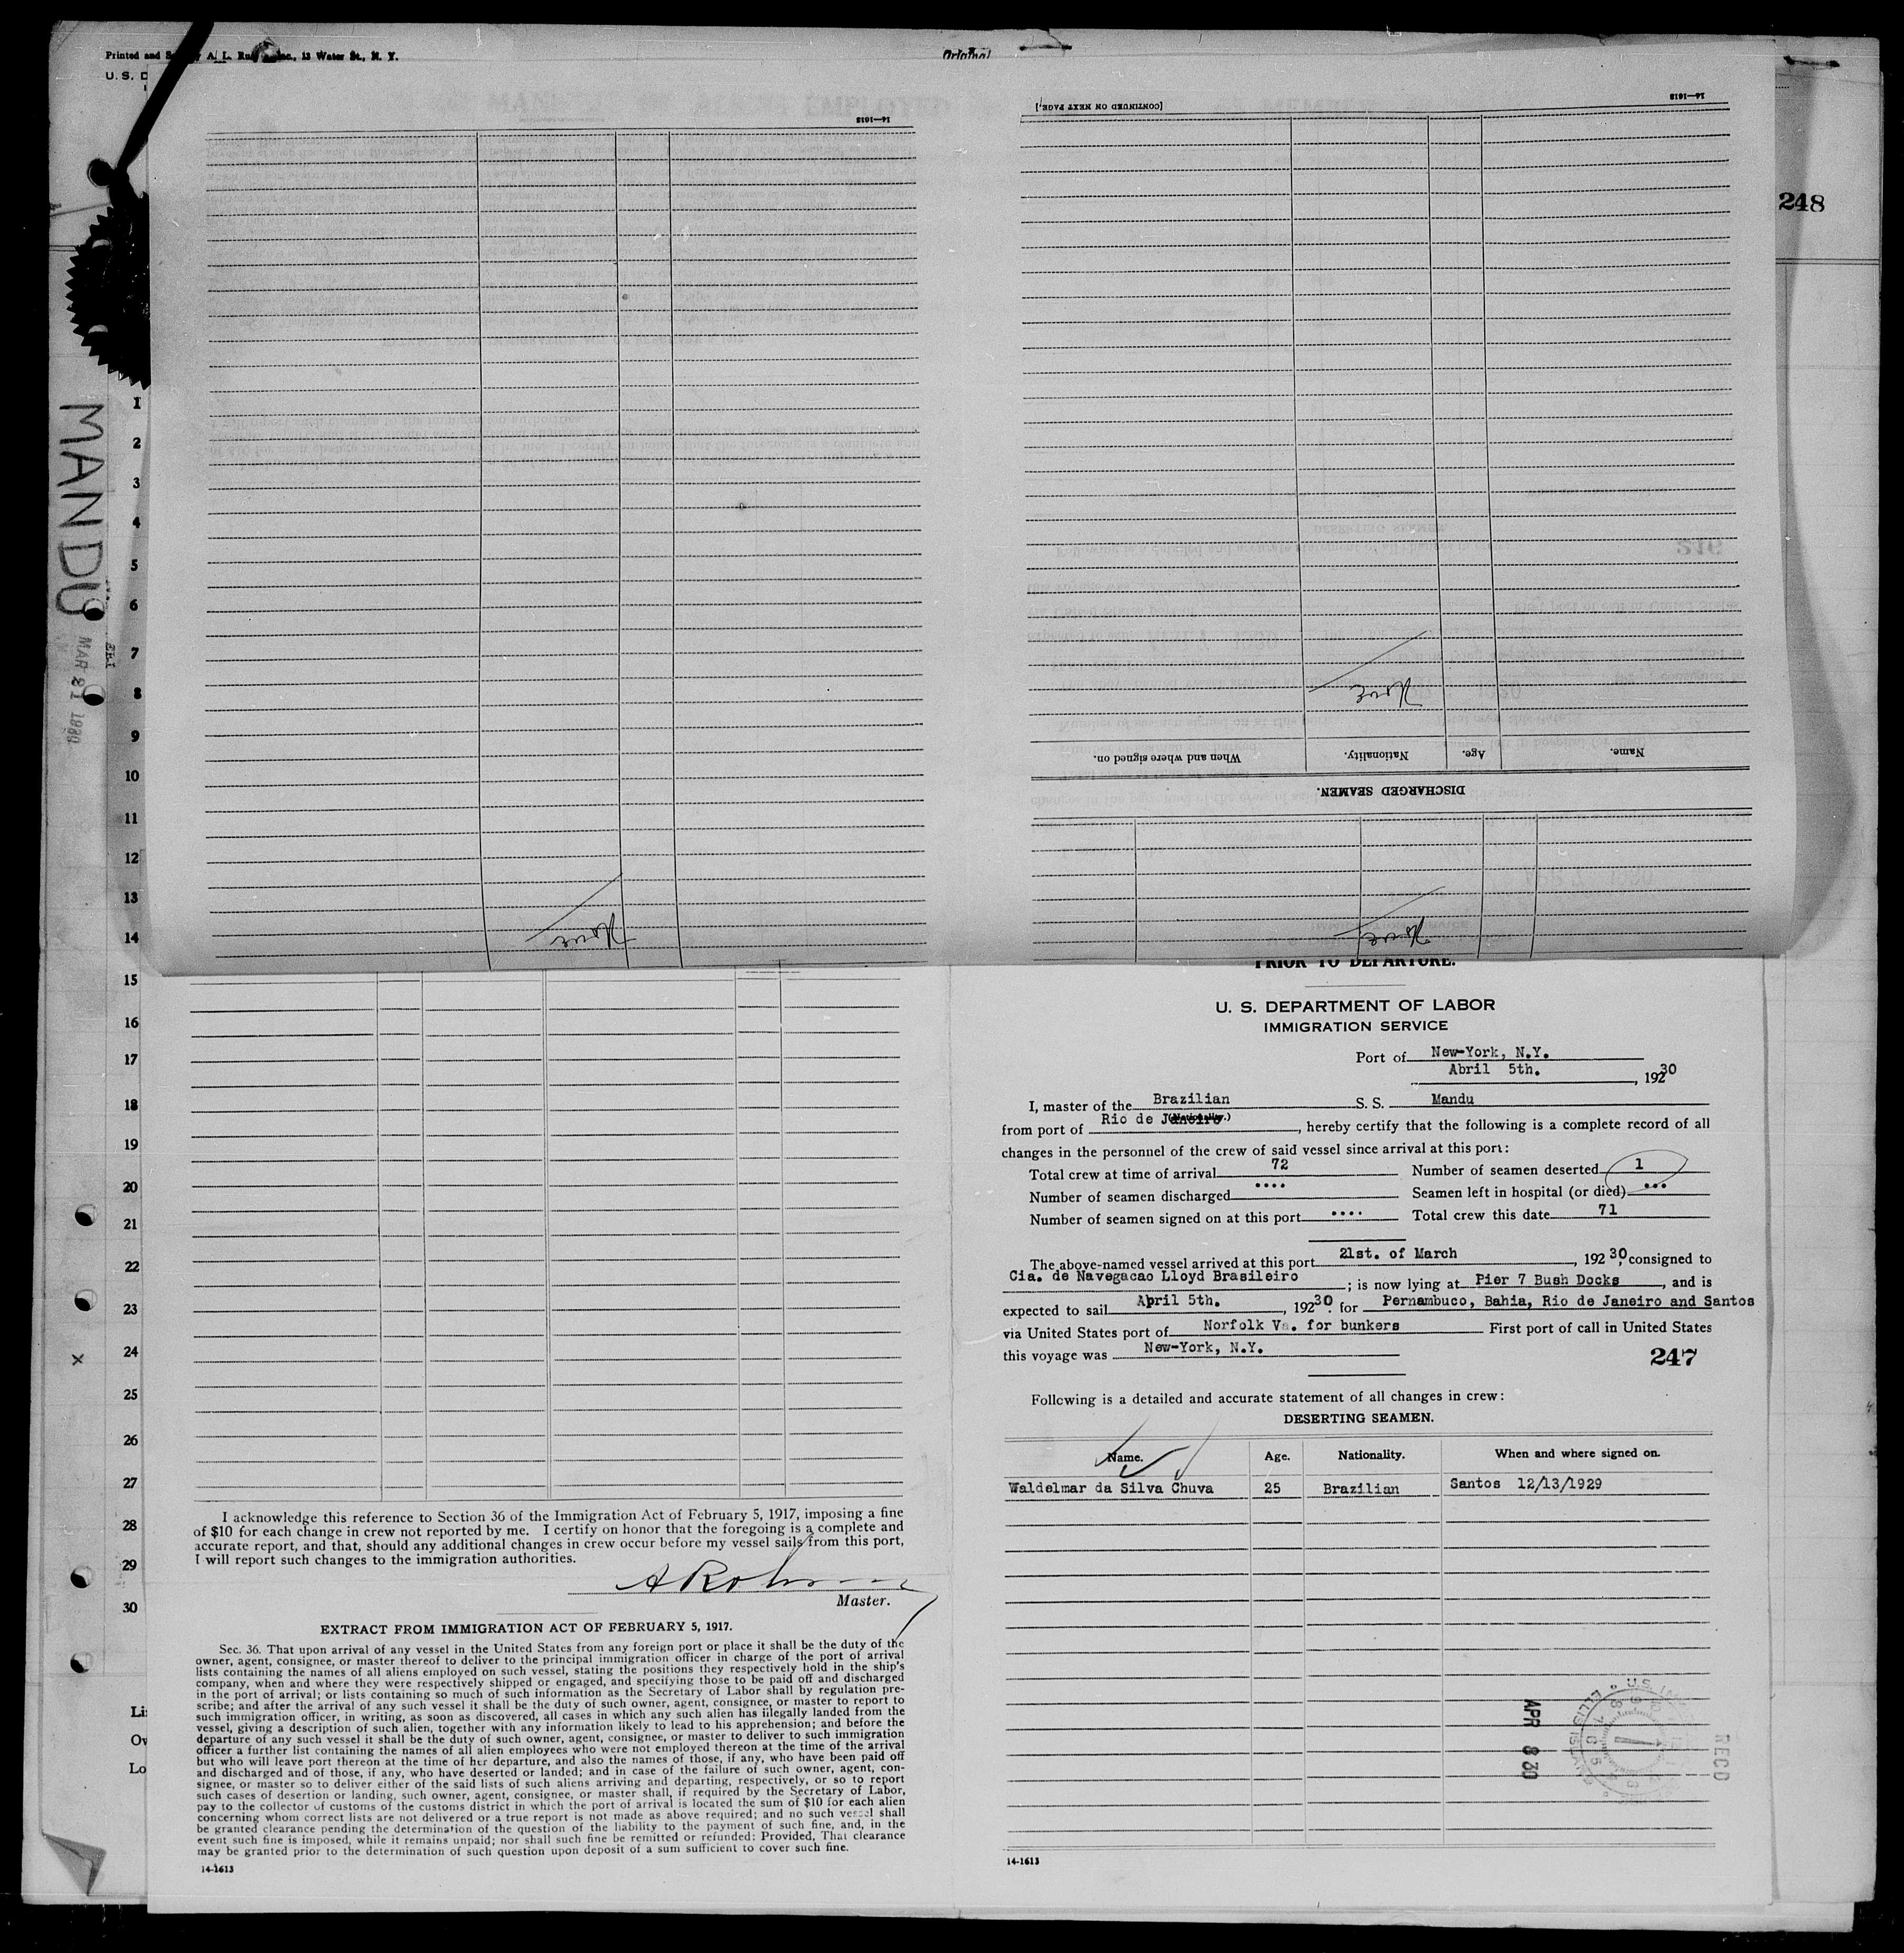 Printed and Sold by A. L. Russell, Inc., 13 Water St., N. Y.
Original
U. S. D
14—1613
[CONTINUED ON NEXT PAGE.]
14—1613
248
MANDU
MAR 21 1930
1
2
3
4
5
6
7
8
9
10
11
12
13
14
15
16
17
18
19
20
21
22
23
24
25
26
27
28
29
30
Li
Ow
Lo
None
None
DISCHARGED SEAMEN.
Name.
Age.
Nationality.
When and where signed on.
None
PRIOR TO DEPARTURE.
U. S. DEPARTMENT OF LABOR
IMMIGRATION SERVICE
Port of New-York, N.Y.
Abril 5th. , 192 30
I, master of the Brazilian S. S. Mandu
(Nationality.)
from port of Rio de Janeiro , hereby certify that the following is a complete record of all
changes in the personnel of the crew of said vessel since arrival at this port:
Total crew at time of arrival 72 Number of seamen deserted 1
Number of seamen discharged .... Seamen left in hospital (or died) ...
Number of seamen signed on at this port .... Total crew this date 71
The above-named vessel arrived at this port 21st. of March , 192 30, consigned to
Cia. de Navegacao Lloyd Brasileiro ; is now lying at Pier 7 Bush Docks , and is
expected to sail April 5th. , 192 30. for Pernambuco, Bahia, Rio de Janeiro and Santos
via United States port of Norfolk Va. for bunkers First port of call in United States
this voyage was New-York, N.Y.
247
Following is a detailed and accurate statement of all changes in crew:
DESERTING SEAMEN.
Name. Age. Nationality. When and where signed on.
Waldelmar da Silva Chuva 25 Brazilian Santos 12/13/1929
APR 8 30
U.S. IMM
ELLIS ISLAND
RECD
14-1613
I acknowledge this reference to Section 36 of the Immigration Act of February 5, 1917, imposing a fine
of $10 for each change in crew not reported by me. I certify on honor that the foregoing is a complete and
accurate report, and that, should any additional changes in crew occur before my vessel sails from this port,
I will report such changes to the immigration authorities.
Master.
EXTRACT FROM IMMIGRATION ACT OF FEBRUARY 5, 1917.
Sec. 36. That upon arrival of any vessel in the United States from any foreign port or place it shall be the duty of the
owner, agent, consignee, or master thereof to deliver to the principal immigration officer in charge of the port of arrival
lists containing the names of all aliens employed on such vessel, stating the positions they respectively hold in the ship's
company, when and where they were respectively shipped or engaged, and specifying those to be paid off and discharged
in the port of arrival; or lists containing so much of such information as the Secretary of Labor shall by regulation pre-
scribe; and after the arrival of any such vessel it shall be the duty of such owner, agent, consignee, or master to report to
such immigration officer, in writing, as soon as discovered, all cases in which any such alien has illegally landed from the
vessel, giving a description of such alien, together with any information likely to lead to his apprehension; and before the
departure of any such vessel it shall be the duty of such owner, agent, consignee, or master to deliver to such immigration
officer a further list containing the names of all alien employees who were not employed thereon at the time of the arrival
but who will leave port thereon at the time of her departure, and also the names of those, if any, who have been paid off
and discharged and of those, if any, who have deserted or landed; and in case of the failure of such owner, agent, con-
signee, or master so to deliver either of the said lists of such aliens arriving and departing, respectively, or so to report
such cases of desertion or landing, such owner, agent, consignee, or master shall, if required by the Secretary of Labor,
pay to the collector of customs of the customs district in which the port of arrival is located the sum of $10 for each alien
concerning whom correct lists are not delivered or a true report is not made as above required; and no such vessel shall
be granted clearance pending the determination of the question of the liability to the payment of such fine, and, in the
event such fine is imposed, while it remains unpaid; nor shall such fine be remitted or refunded: Provided, That clearance
may be granted prior to the determination of such question upon deposit of a sum sufficient to cover such fine.
14-1613